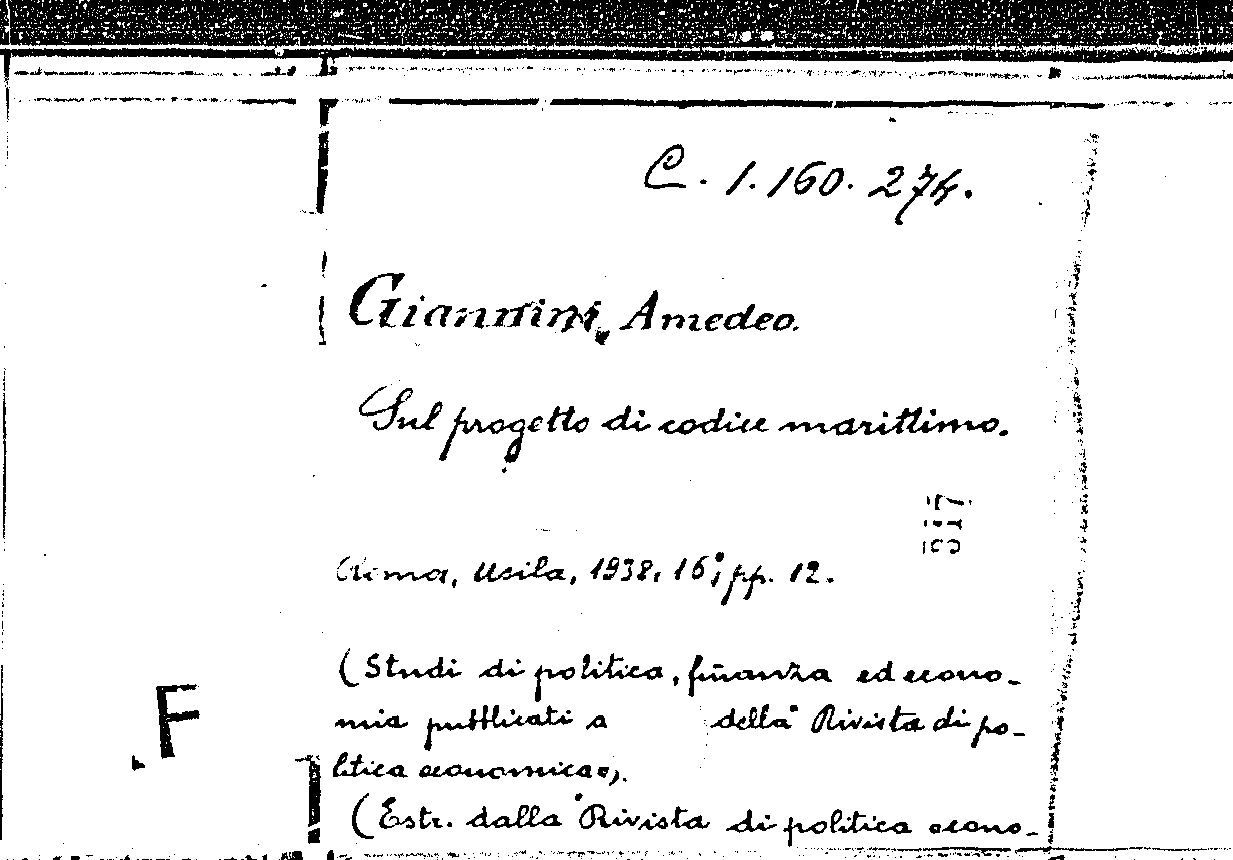 C. 1. 160. 274.
Giannini, Amedeo.
Sul progetto di codice marittimo.
317
Roma, Usila, 1938, 16°, pp. 12.
(Studi di politica, finanza ed econo-
mia pubblicati a della "Rivista di po-
litica economica").
F
(Estr. dalla "Rivista di politica econo-